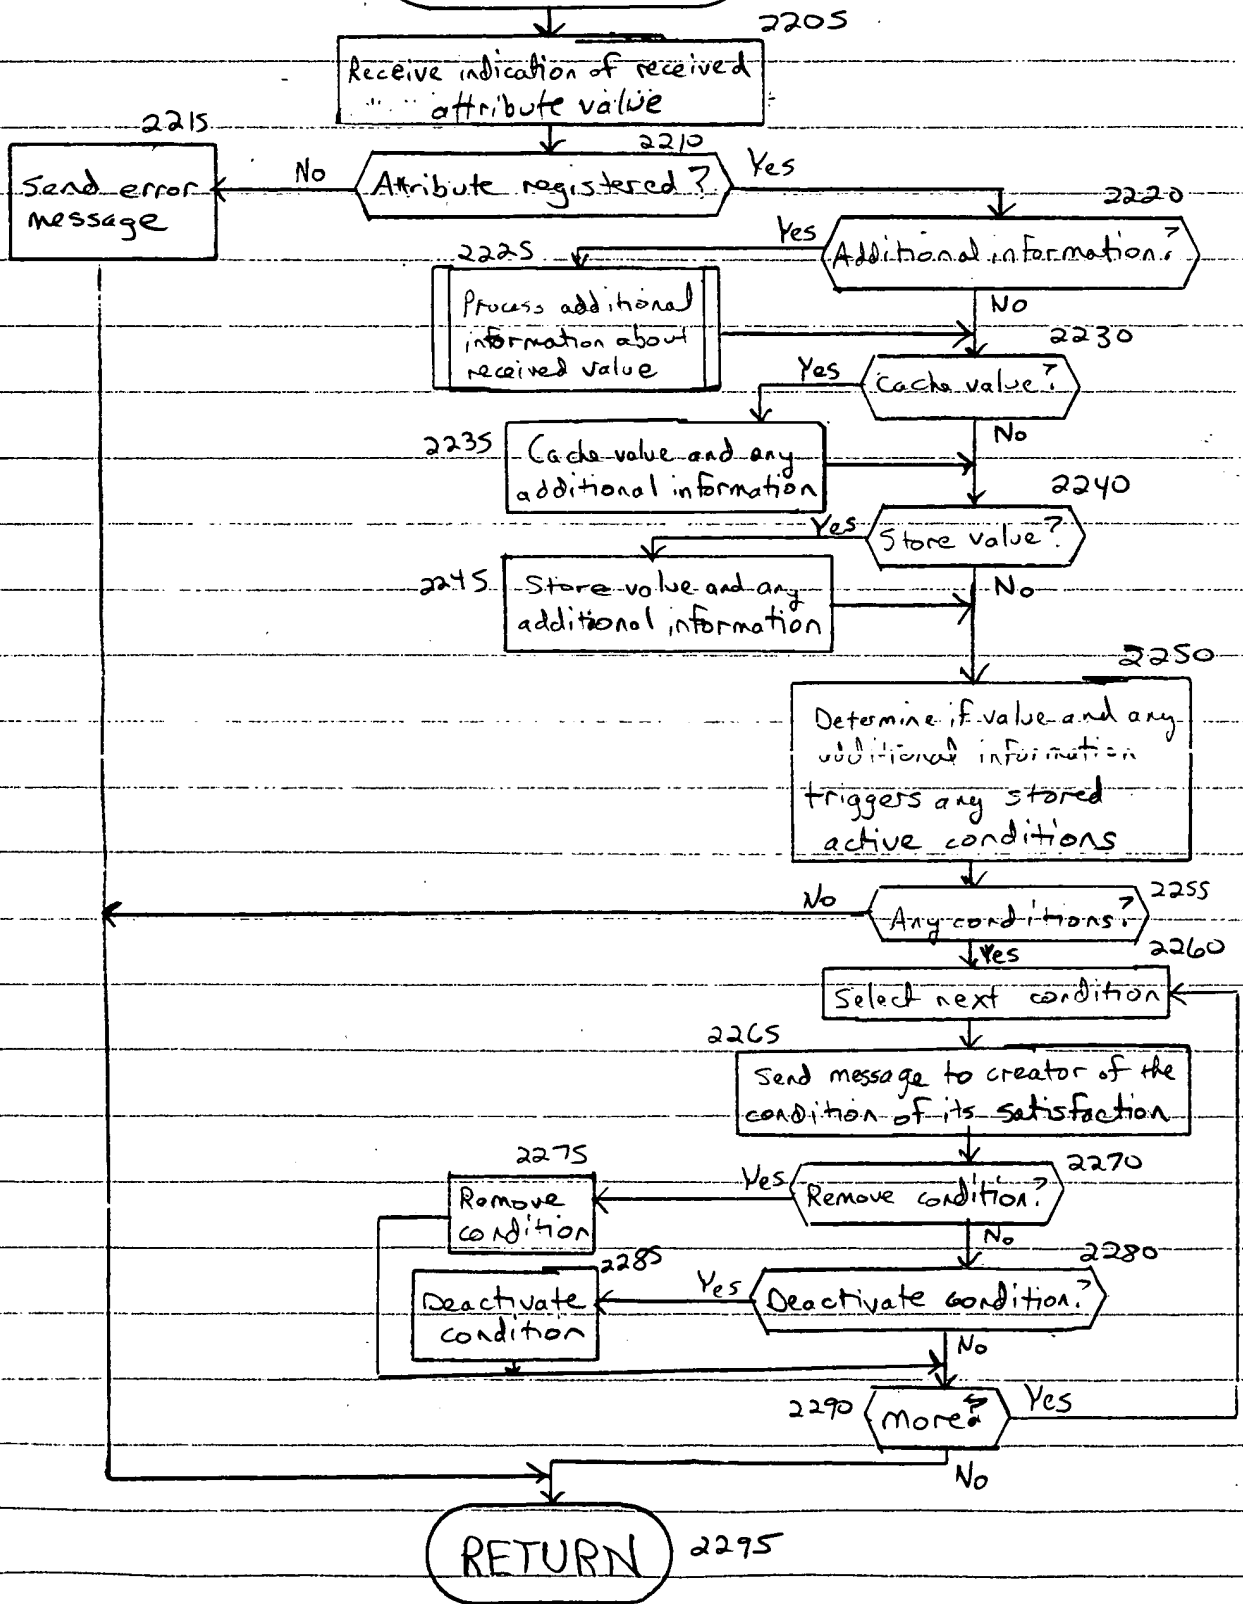 2205
Receive indication of received
attribute value
2210
Attribute registered?
No
Yes
2215
Send error
message
2220
Additional information?
Yes
No
2225
Process additional
information about
received value
2230
Cache value?
Yes
No
2235
Cache value and any
additional information
2240
Store value?
Yes
No
2245
Store value and any
additional information
2250
Determine if value and any
additional information
triggers any stored
active conditions
2255
Any conditions?
No
Yes
2260
Select next condition
2265
Send message to creator of the
condition of its satisfaction
2270
Remove condition?
Yes
No
2275
Remove
condition
2280
Deactivate condition?
Yes
No
2285
Deactivate
condition
2290
More?
Yes
No
RETURN
2295